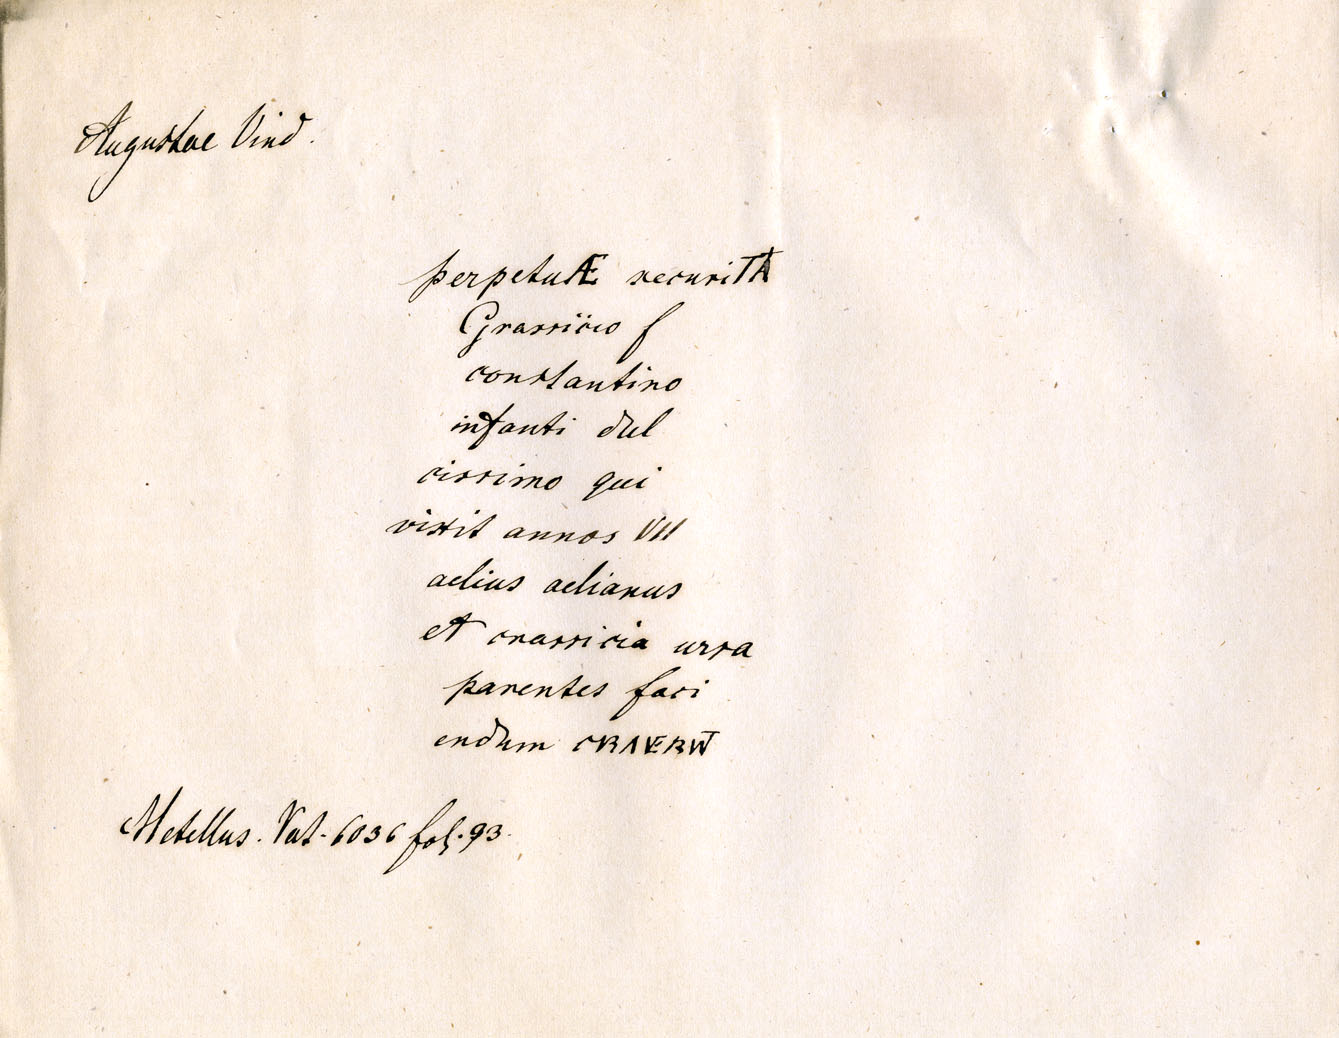 Augustae Vind.
perpetuÆ securiTA
Grassicio f
constantino
infanti dul
cissimo qui
vixit annos VII
aelius aelianus
et crassicia ursa
parentes faci
endum CRAVERVNT
Metellus. Vat. 6036 fol. 93.